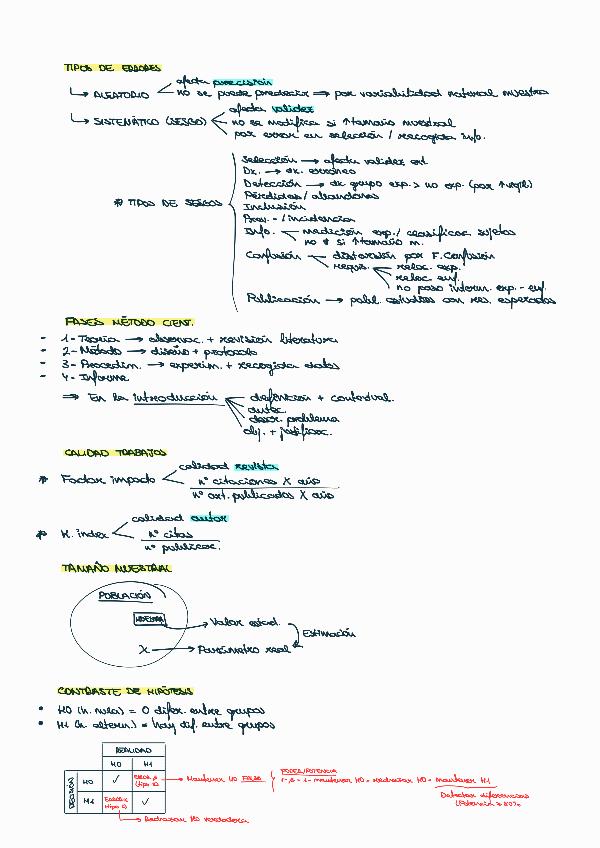 TIPOS DE ERRORES
↳ ALEATORIO
afecta precisión
no se puede predecir ⇒ por variabilidad natural muestra
↳ SISTEMÁTICO (SESGO)
afecta validez
no se modifica si ↑tamaño muestral
por error en selección / recogida info.
* TIPOS DE SESGOS
Selección → afecta validez ext.
Dx. → dx. erróneo
Detección → dx grupo exp. > no exp. (por ↑vigil)
Pérdidas / abandonos
Inclusión
Prev. - / incidencia
Info. medición exp. / clasificar sujetos
no ≠ si ↑tamaño m.
Confusión distorsión por F. Confusión
requis. relac. exp.
relac. enf.
no paso interm. exp. - enf.
Publicación → publ. estudios con res. esperados
FASES MÉTODO CIENT.
- 1- Teoría → observac. + revisión literatura
- 2- Método → diseño + protocolo
- 3- Procedim. → experim. + recogida datos
- 4- Informe
⇒ En la introducción
definición + contextual.
antec.
descr. problema
obj. + justificac.
CALIDAD TRABAJOS
* Factor impacto
calidad revista
nº citaciones X año
nº art. publicados X año
* H. index
calidad autor
nº citas
nº publicac.
TAMAÑO MUESTRAL
POBLACIÓN
MUESTRA → Valor estad.
Estimación
X → Parámetro real
CONTRASTE DE HIPÓTESIS
• H0 (h. nula) = 0 difer. entre grupos
• H1 (h. altern.) = hay dif. entre grupos
REALIDAD
H0 H1
DECISIÓN
H0 ✓ ERROR β (tipo II) → Mantener H0 FALSA
PODER/POTENCIA
1-β = 1- mantener H0 = rechazar H0 = mantener H1
Detectar diferencias
H1 ERROR α (tipo I) ✓
→ Rechazar H0 verdadera